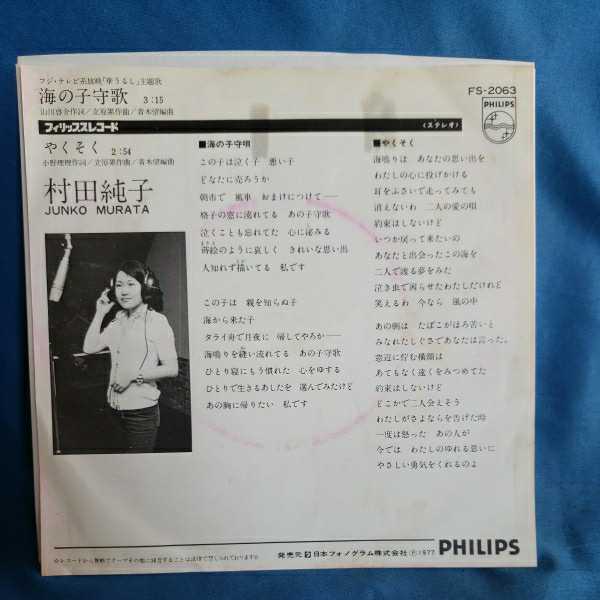 フジ・テレビ系放映「華うるし」主題歌
海の子守歌 3:15
山川啓介作詞/立原累作曲/青木望編曲
フィリップスレコード 〈ステレオ〉
やくそく 2:54
小野理理作詞/立原累作曲/青木望編曲
村田純子
JUNKO MURATA
FS-2063
PHILIPS
■海の子守唄
この子は泣く子 悪い子
どなたに売ろうか
朝市で 風車 おまけにつけて――
格子の窓に流れてる あの子守歌
泣くことも忘れてた 心に泌みる
蒔絵のように哀しく きれいな思い出
人知れず描いてる 私です
この子は 親を知らぬ子
海から来た子
タライ舟で月夜に 帰してやろか――
海鳴りを縫い流れてる あの子守歌
ひとり寝にもう慣れた 心をゆする
ひとりで生きるあしたを 選んでみたけど
あの胸に帰りたい 私です
■やくそく
海鳴りは あなたの思い出を
わたしの心に投げかける
耳をふさいで走ってみても
消えないわ 二人の愛の唄
約束はしないけど
いつか戻って来たいの
あなたと出会ったこの海を
二人で渡る夢をみた
泣き虫で困らせたわたしだけれど
笑えるわ 今なら 風の中
あの朝は たばこがほろ苦いと
みなれたしぐさであなたは言った。
窓辺に佇む横顔は
あてもなく遠くをみつめてた
約束はしないけど
どこかで二人会えそう
わたしがさよならを告げた時
一度は怒った あの人が
今では わたしのゆれる思いに
やさしい勇気をくれるのよ
☆レコードから無断でテープその他に録音することは法律で禁じられております。
発売元 日本フォノグラム株式会社 Ⓟ1977
PHILIPS